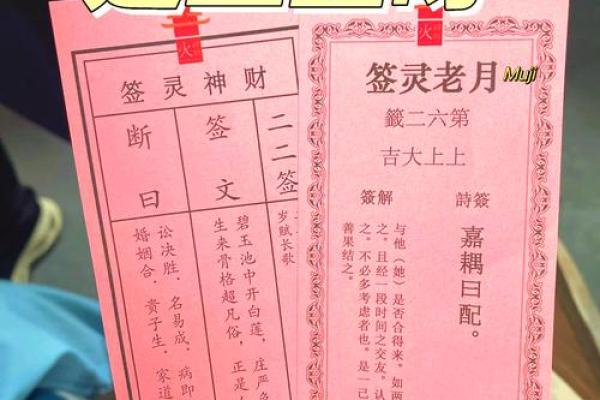 火
财神灵签
二二签
岁赋长歌
签文
碧玉池中开白莲，庄严
生来骨格超凡俗，正是
断曰
讼决胜．名易成．病即
婚姻合．贵子生．家道
火
月老灵签
Muji
第六二籤
上上大吉
簽詩
嘉耦曰配。
解簽
与他（她）是否合得来。如两
之，且经一段时间之交友，认
之。不必多考虑者也。是一己
善果结之。